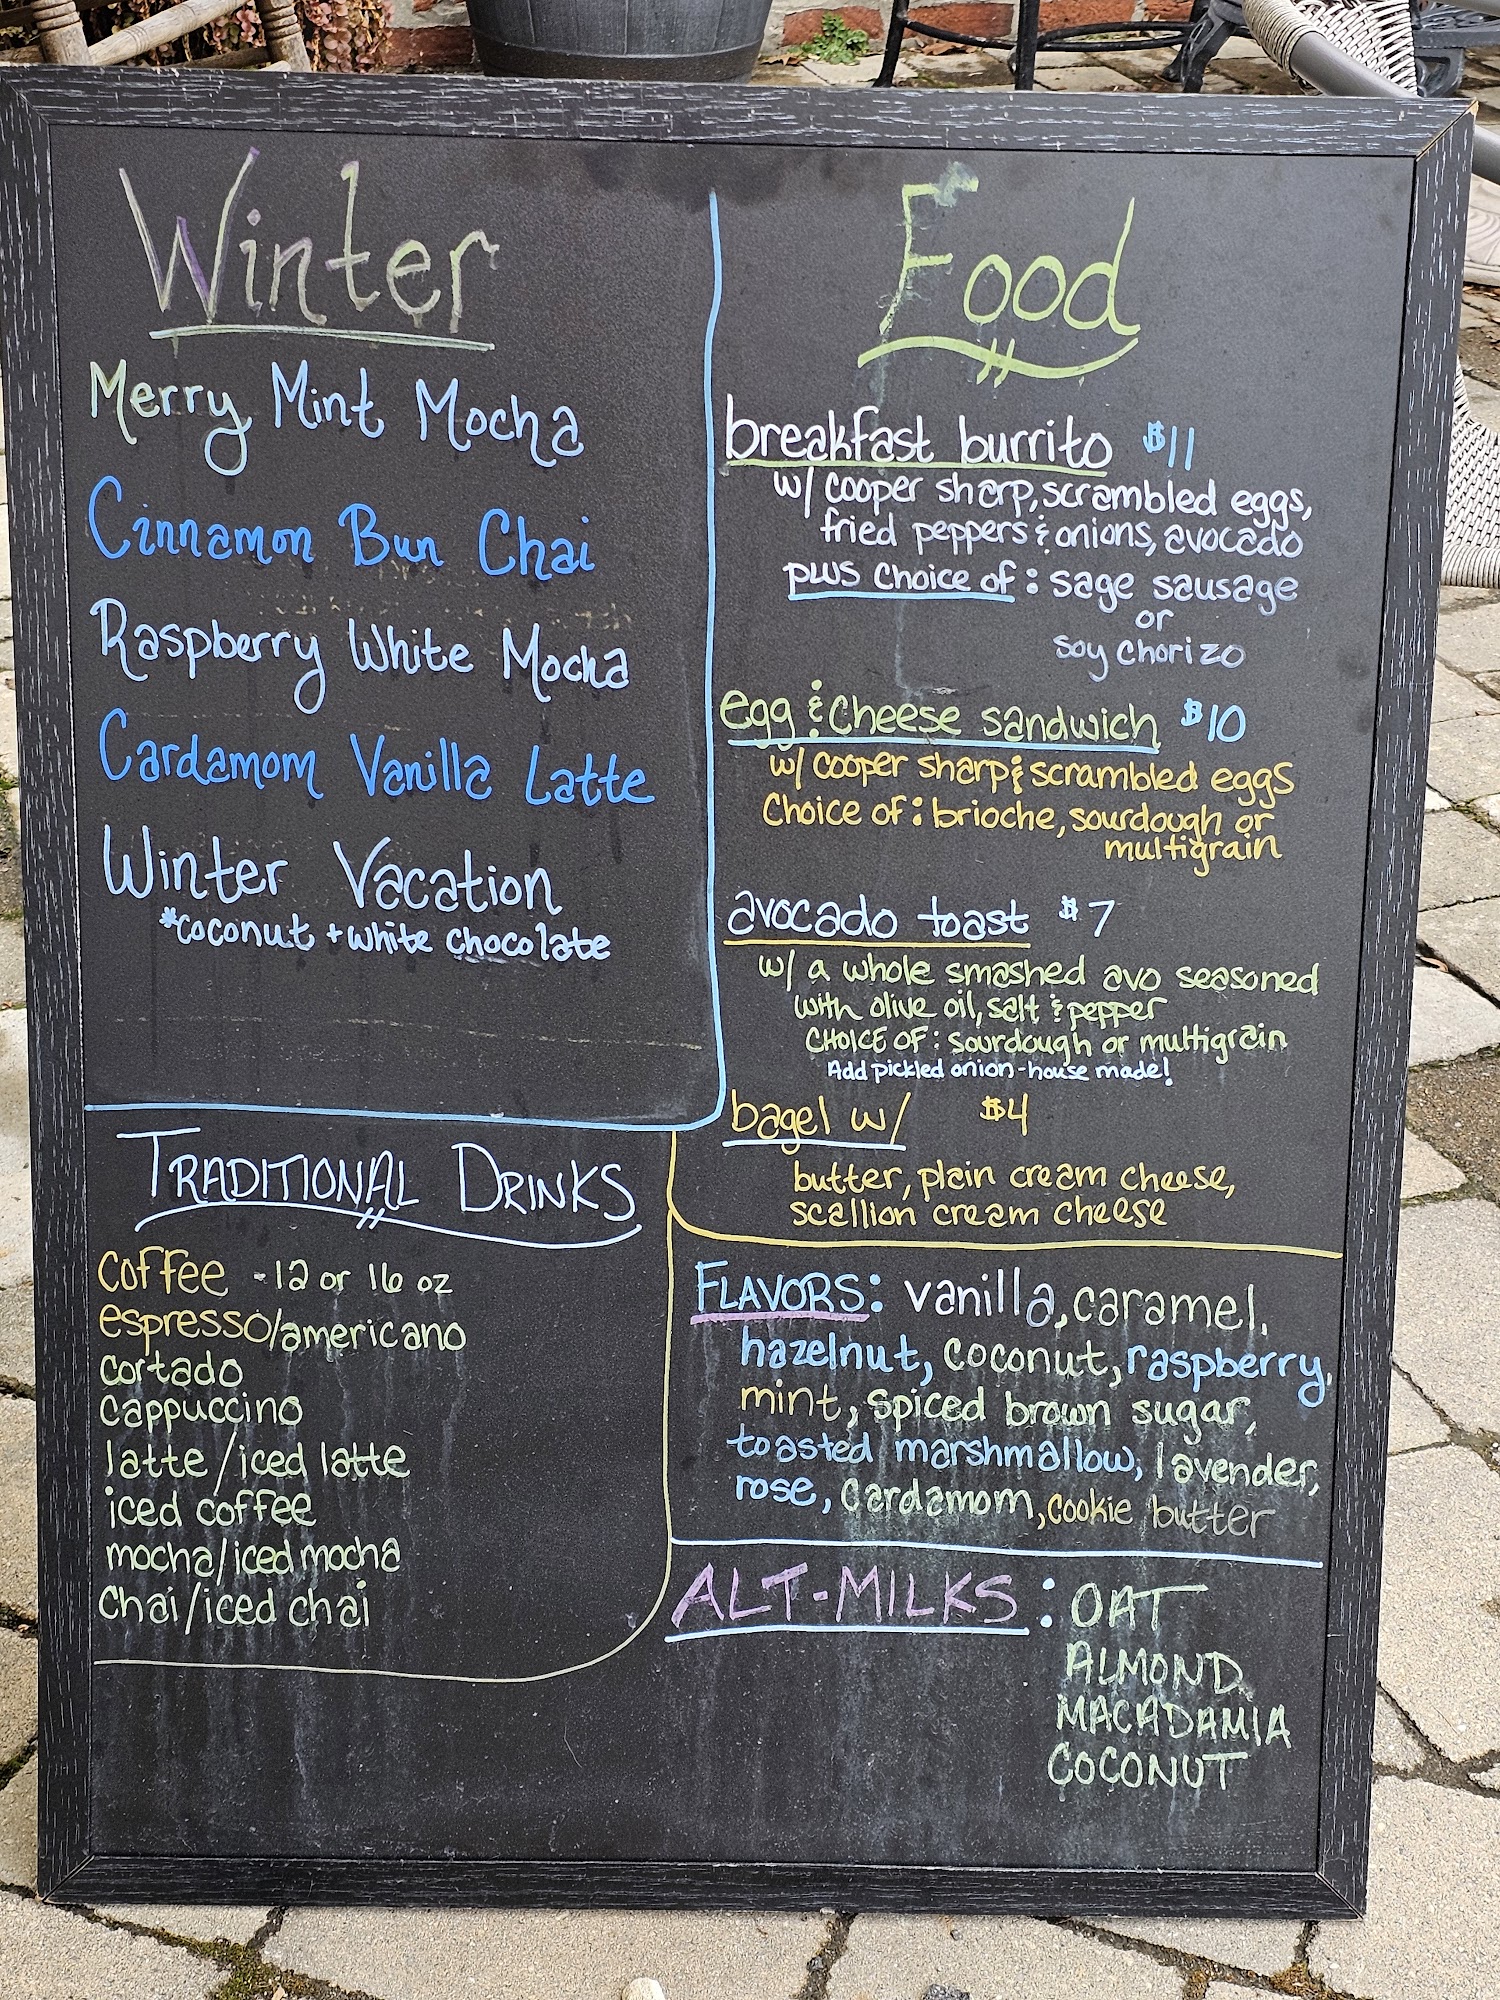 Winter
Merry Mint Mocha
Cinnamon Bun Chai
Raspberry White Mocha
Cardamom Vanilla Latte
Winter Vacation
*coconut + white chocolate
TRADITIONAL DRINKS
coffee - 12 or 16 oz
espresso/americano
cortado
cappuccino
latte/iced latte
iced coffee
mocha/iced mocha
Chai/iced chai
Food
breakfast burrito $11
w/ cooper sharp, scrambled eggs,
fried peppers & onions, avocado
plus choice of: sage sausage
or
soy chorizo
egg & cheese sandwich $10
w/ cooper sharp & scrambled eggs
Choice of: brioche, sourdough or
multigrain
avocado toast $7
w/ a whole smashed avo seasoned
with olive oil, salt & pepper
CHOICE OF: sourdough or multigrain
Add pickled onion-house made!
bagel w/ $4
butter, plain cream cheese,
scallion cream cheese
FLAVORS: vanilla, caramel,
hazelnut, coconut, raspberry,
mint, spiced brown sugar,
toasted marshmallow, lavender,
rose, cardamom, cookie butter
ALT-MILKS: OAT
ALMOND
MACADAMIA
COCONUT